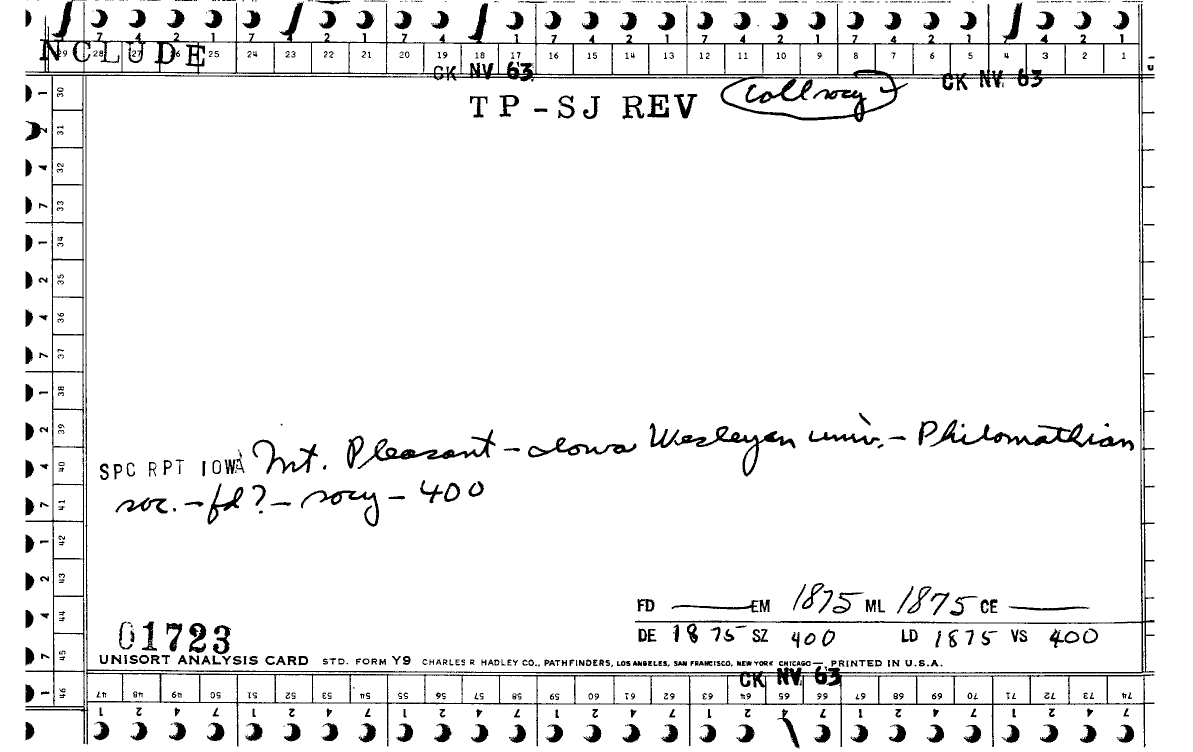 7 4 2 1 7 4 2 1 7 4 2 1 7 4 2 1 7 4 2 1 7 4 2 1 7 4 2 1
NCLUDE
29 28 27 26 25 24 23 22 21 20 19 18 17 16 15 14 13 12 11 10 9 8 7 6 5 4 3 2 1
CK NV 63 CK NV 63
TP-SJ REV Coll socy
1 30
2 31
4 32
7 33
1 34
2 35
4 36
7 37
1 38
2 39
4 40
7 41
1 42
2 43
4 44
7 45
1 46
SPC RPT IOWA Mt. Pleasant - Iowa Wesleyan univ. - Philomathian
soc. - fd? - socy - 400
FD EM 1875 ML 1875 CE
DE 1875 SZ 400 LD 1875 VS 400
01723
UNISORT ANALYSIS CARD STD. FORM Y9 CHARLES R HADLEY CO., PATHFINDERS, LOS ANGELES, SAN FRANCISCO, NEW YORK CHICAGO — PRINTED IN U.S.A.
CK NV 63
47 48 49 50 51 52 53 54 55 56 57 58 59 60 61 62 63 64 65 66 67 68 69 70 71 72 73 74
1 2 4 7 1 2 4 7 1 2 4 7 1 2 4 7 1 2 4 7 1 2 4 7 1 2 4 7